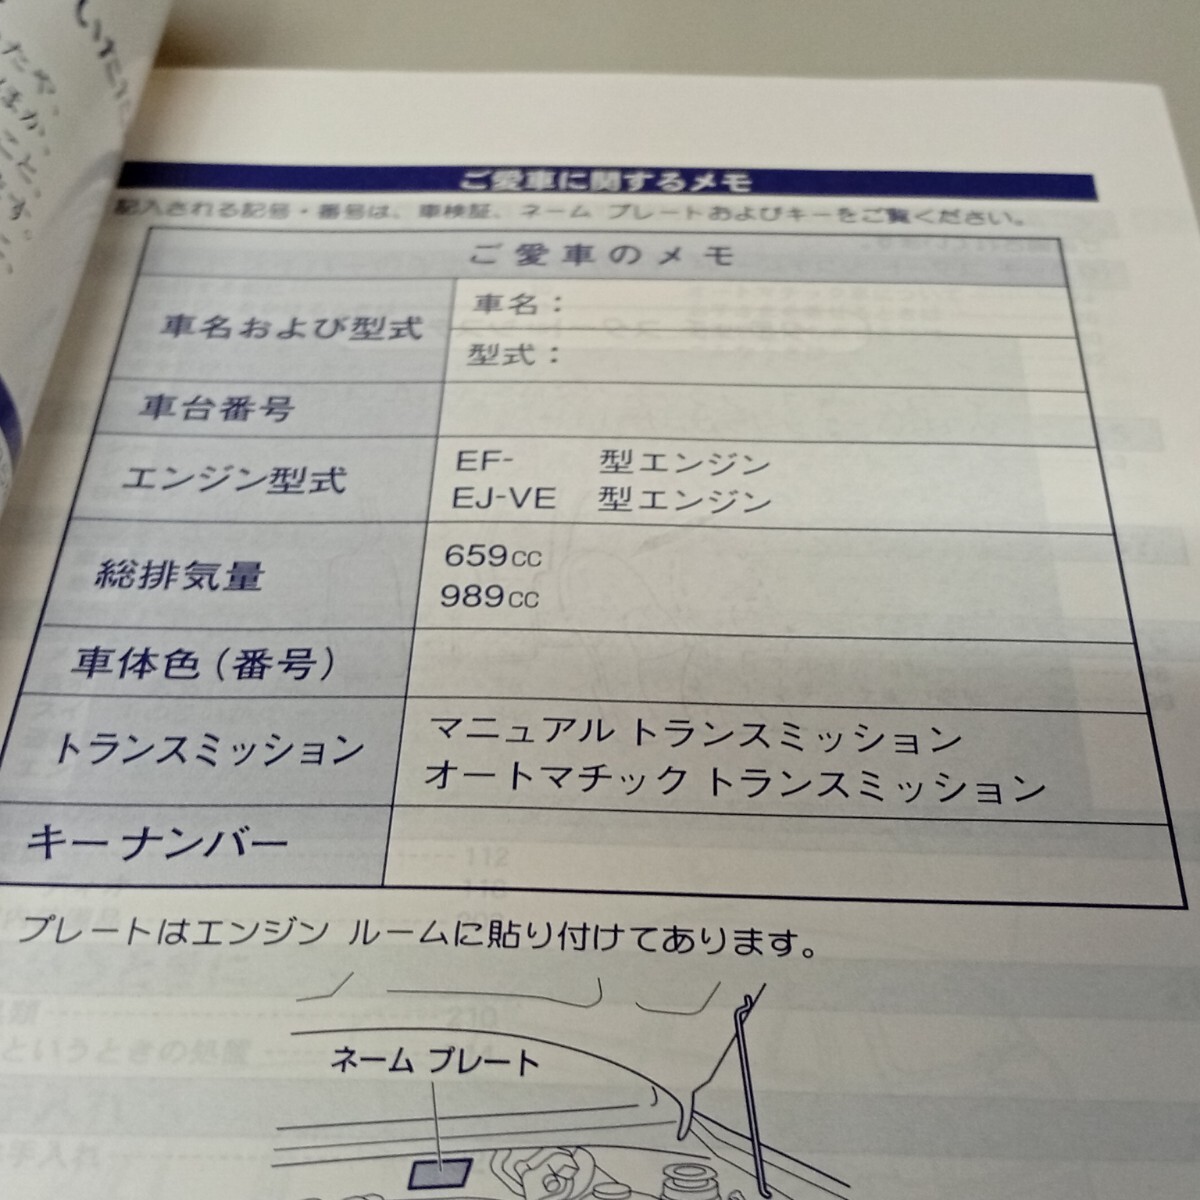 いただ
たや、
ほか、
こと、
す。
ご愛車に関するメモ
記入される記号・番号は、車検証、ネーム プレートおよびキーをご覧ください。
ご愛車のメモ
車名および型式
車名：
型式：
車台番号
エンジン型式
EF- 型エンジン
EJ-VE 型エンジン
総排気量
659cc
989cc
車体色（番号）
トランスミッション
マニュアル トランスミッション
オートマチック トランスミッション
キー ナンバー
プレートはエンジン ルームに貼り付けてあります。
ネーム プレート
112
210
というときの処置
手入れ